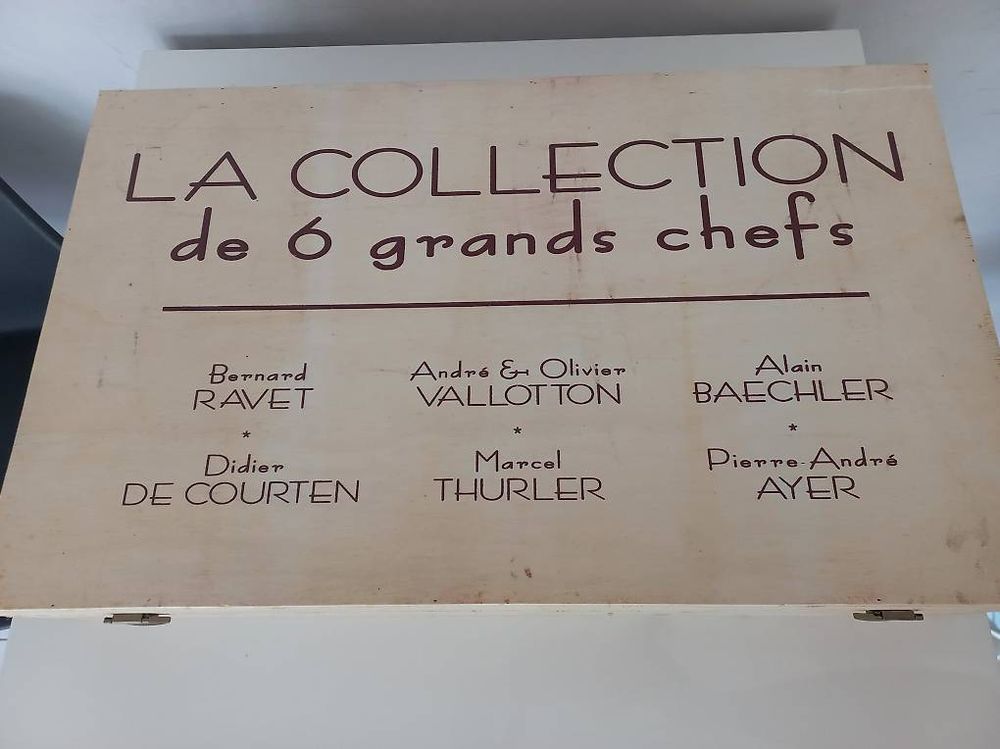 LA COLLECTION
de 6 grands chefs
Bernard
RAVET
*
Didier
DE COURTEN
André & Olivier
VALLOTTON
*
Marcel
THURLER
Alain
BAECHLER
*
Pierre-André
AYER